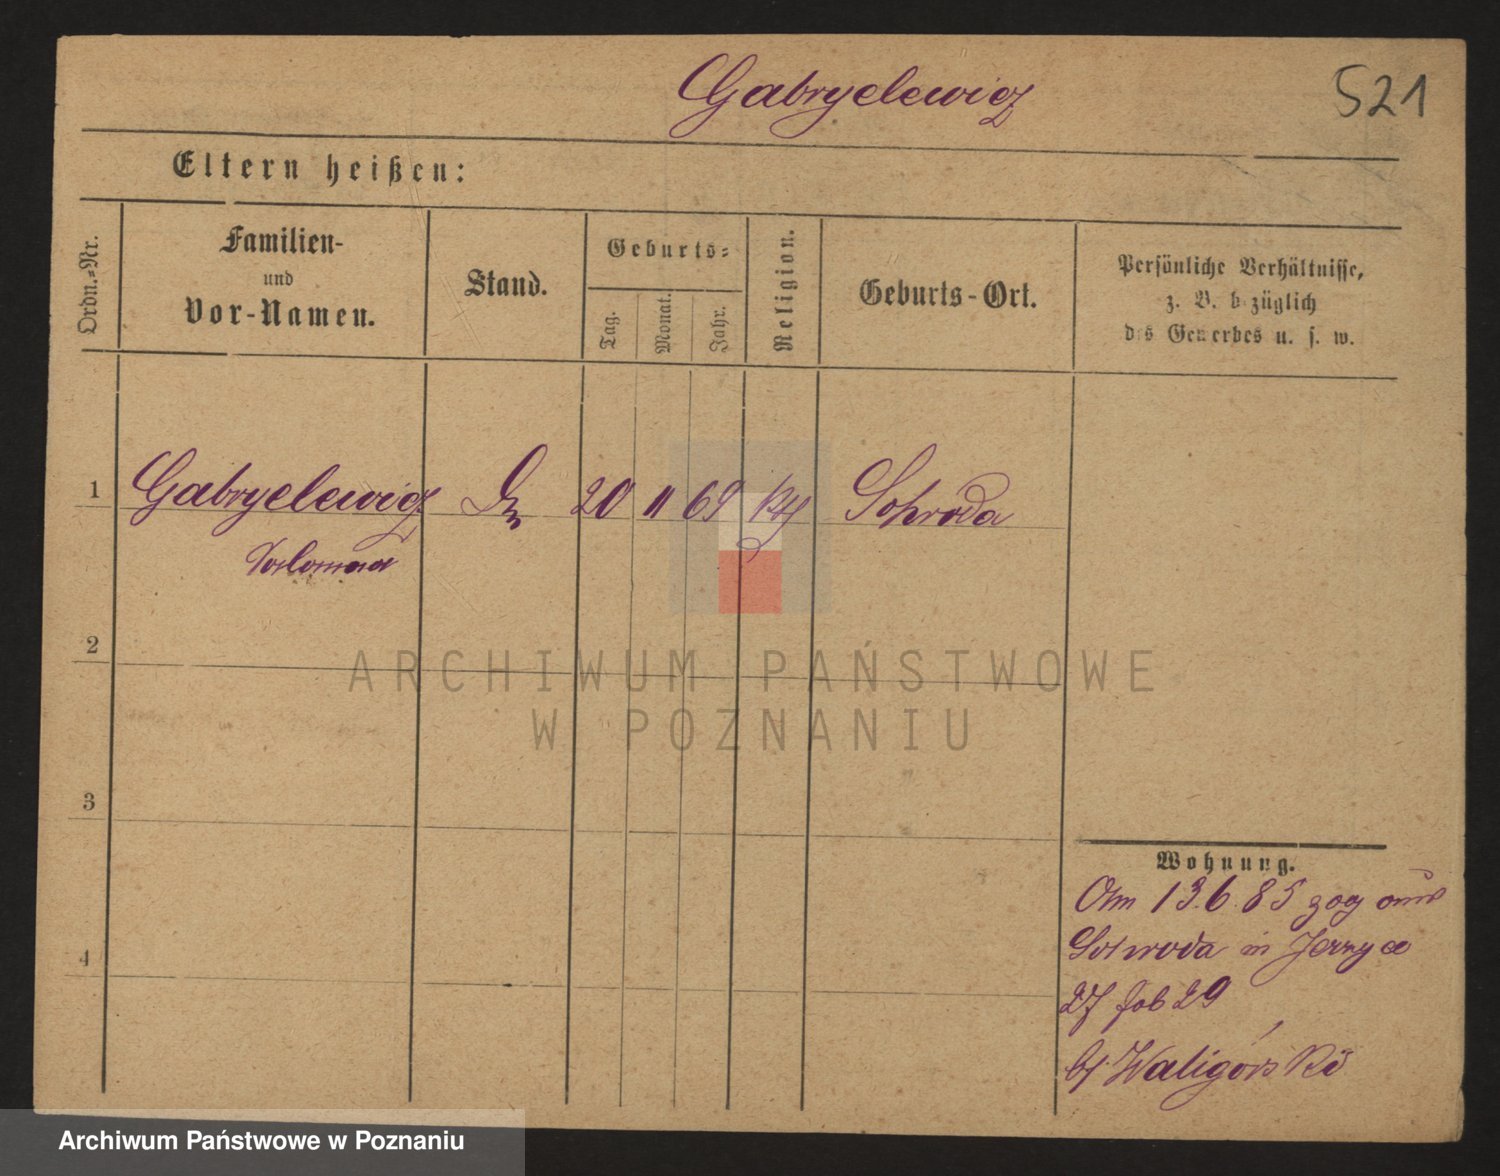 Gabryelewicz
521
Eltern heißen:
Ordn.-Nr.
Familien-
und
Vor-Namen.
Stand.
Geburts-
Tag.
Monat.
Jahr.
Religion.
Geburts-Ort.
Persönliche Verhältnisse,
z. B. bezüglich
des Gewerbes u. s. w.
1
Gabryelewicz
20 11 69
Schroda
2
ARCHIWUM PAŃSTWOWE
W POZNANIU
3
4
Wohnung.
Am 13.6.85 zog aus
Schroda in Jerzyce
27 29
Waligórski
Archiwum Państwowe w Poznaniu